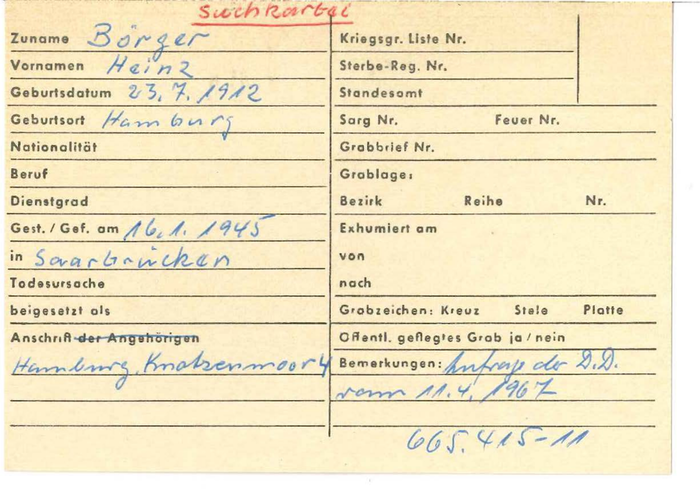 Suchkartei
Zuname Börger
Vornamen Heinz
Geburtsdatum 23.7.1912
Geburtsort Hamburg
Nationalität
Beruf
Dienstgrad
Gest./Gef. am 16.1.1945
in Saarbrücken
Todesursache
beigesetzt als
Anschrift der Angehörigen
Hamburg, Knatzenmoor 4
Kriegsgr. Liste Nr.
Sterbe-Reg. Nr.
Standesamt
Sarg Nr. Feuer Nr.
Grabbrief Nr.
Grablage:
Bezirk Reihe Nr.
Exhumiert am
von
nach
Grabzeichen: Kreuz Stele Platte
Öffentl. geflegtes Grab ja/nein
Bemerkungen: Anfrage der D.D.
vom 11.4.1967
665.415-11